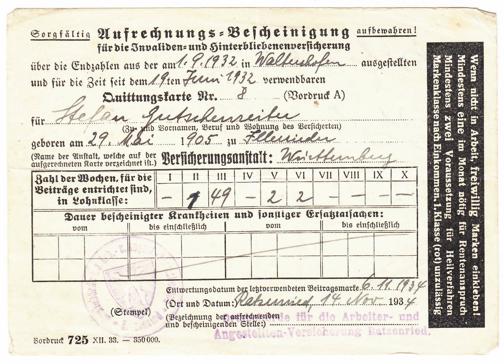 Sorgfältig Aufrechnungs-Bescheinigung aufbewahren!
für die Invaliden- und Hinterbliebenenversicherung
über die Endzahlen aus der am 1.9.1932 in Waltershofen ausgestellten
und für die Zeit seit dem 19ten Juni 1932 verwendbaren
Quittungskarte Nr. 8 (Vordruck A)
für Stefan Gutschenreiter
(Zu- und Vornamen, Beruf und Wohnung des Versicherten)
geboren am 29. Mai 1905 zu
(Name der Anstalt, welche auf der aufgerechneten Karte verzeichnet ist.) Versicherungsanstalt: Württemberg
Zahl der Wochen, für die Beiträge entrichtet sind, in Lohnklasse: I II III IV V VI VII VIII IX X
– 1 49 – 2 2 – – – –
Dauer bescheinigter Krankheiten und sonstiger Ersatztatsachen:
vom bis einschließlich vom bis einschließlich
Entwertungsdatum der letztverwendeten Beitragsmarke 6.11.1934
(Ort und Datum) Ratzenried, 14. Nov. 1934
(Stempel)
(Bezeichnung der aufrechnenden und bescheinigenden Stelle:)
für die Arbeiter- und
Angestellten-Versicherung Ratzenried.
Vordruck 725 XII. 33. — 350000.
Wenn nicht in Arbeit, freiwillig Marken einkleben!
Mindestens eine im Monat nötig für Rentenanspruch
Mindestens zwei Voraussetzung für Heilverfahren
Markenklasse nach Einkommen, 1. Klasse (rot) unzulässig